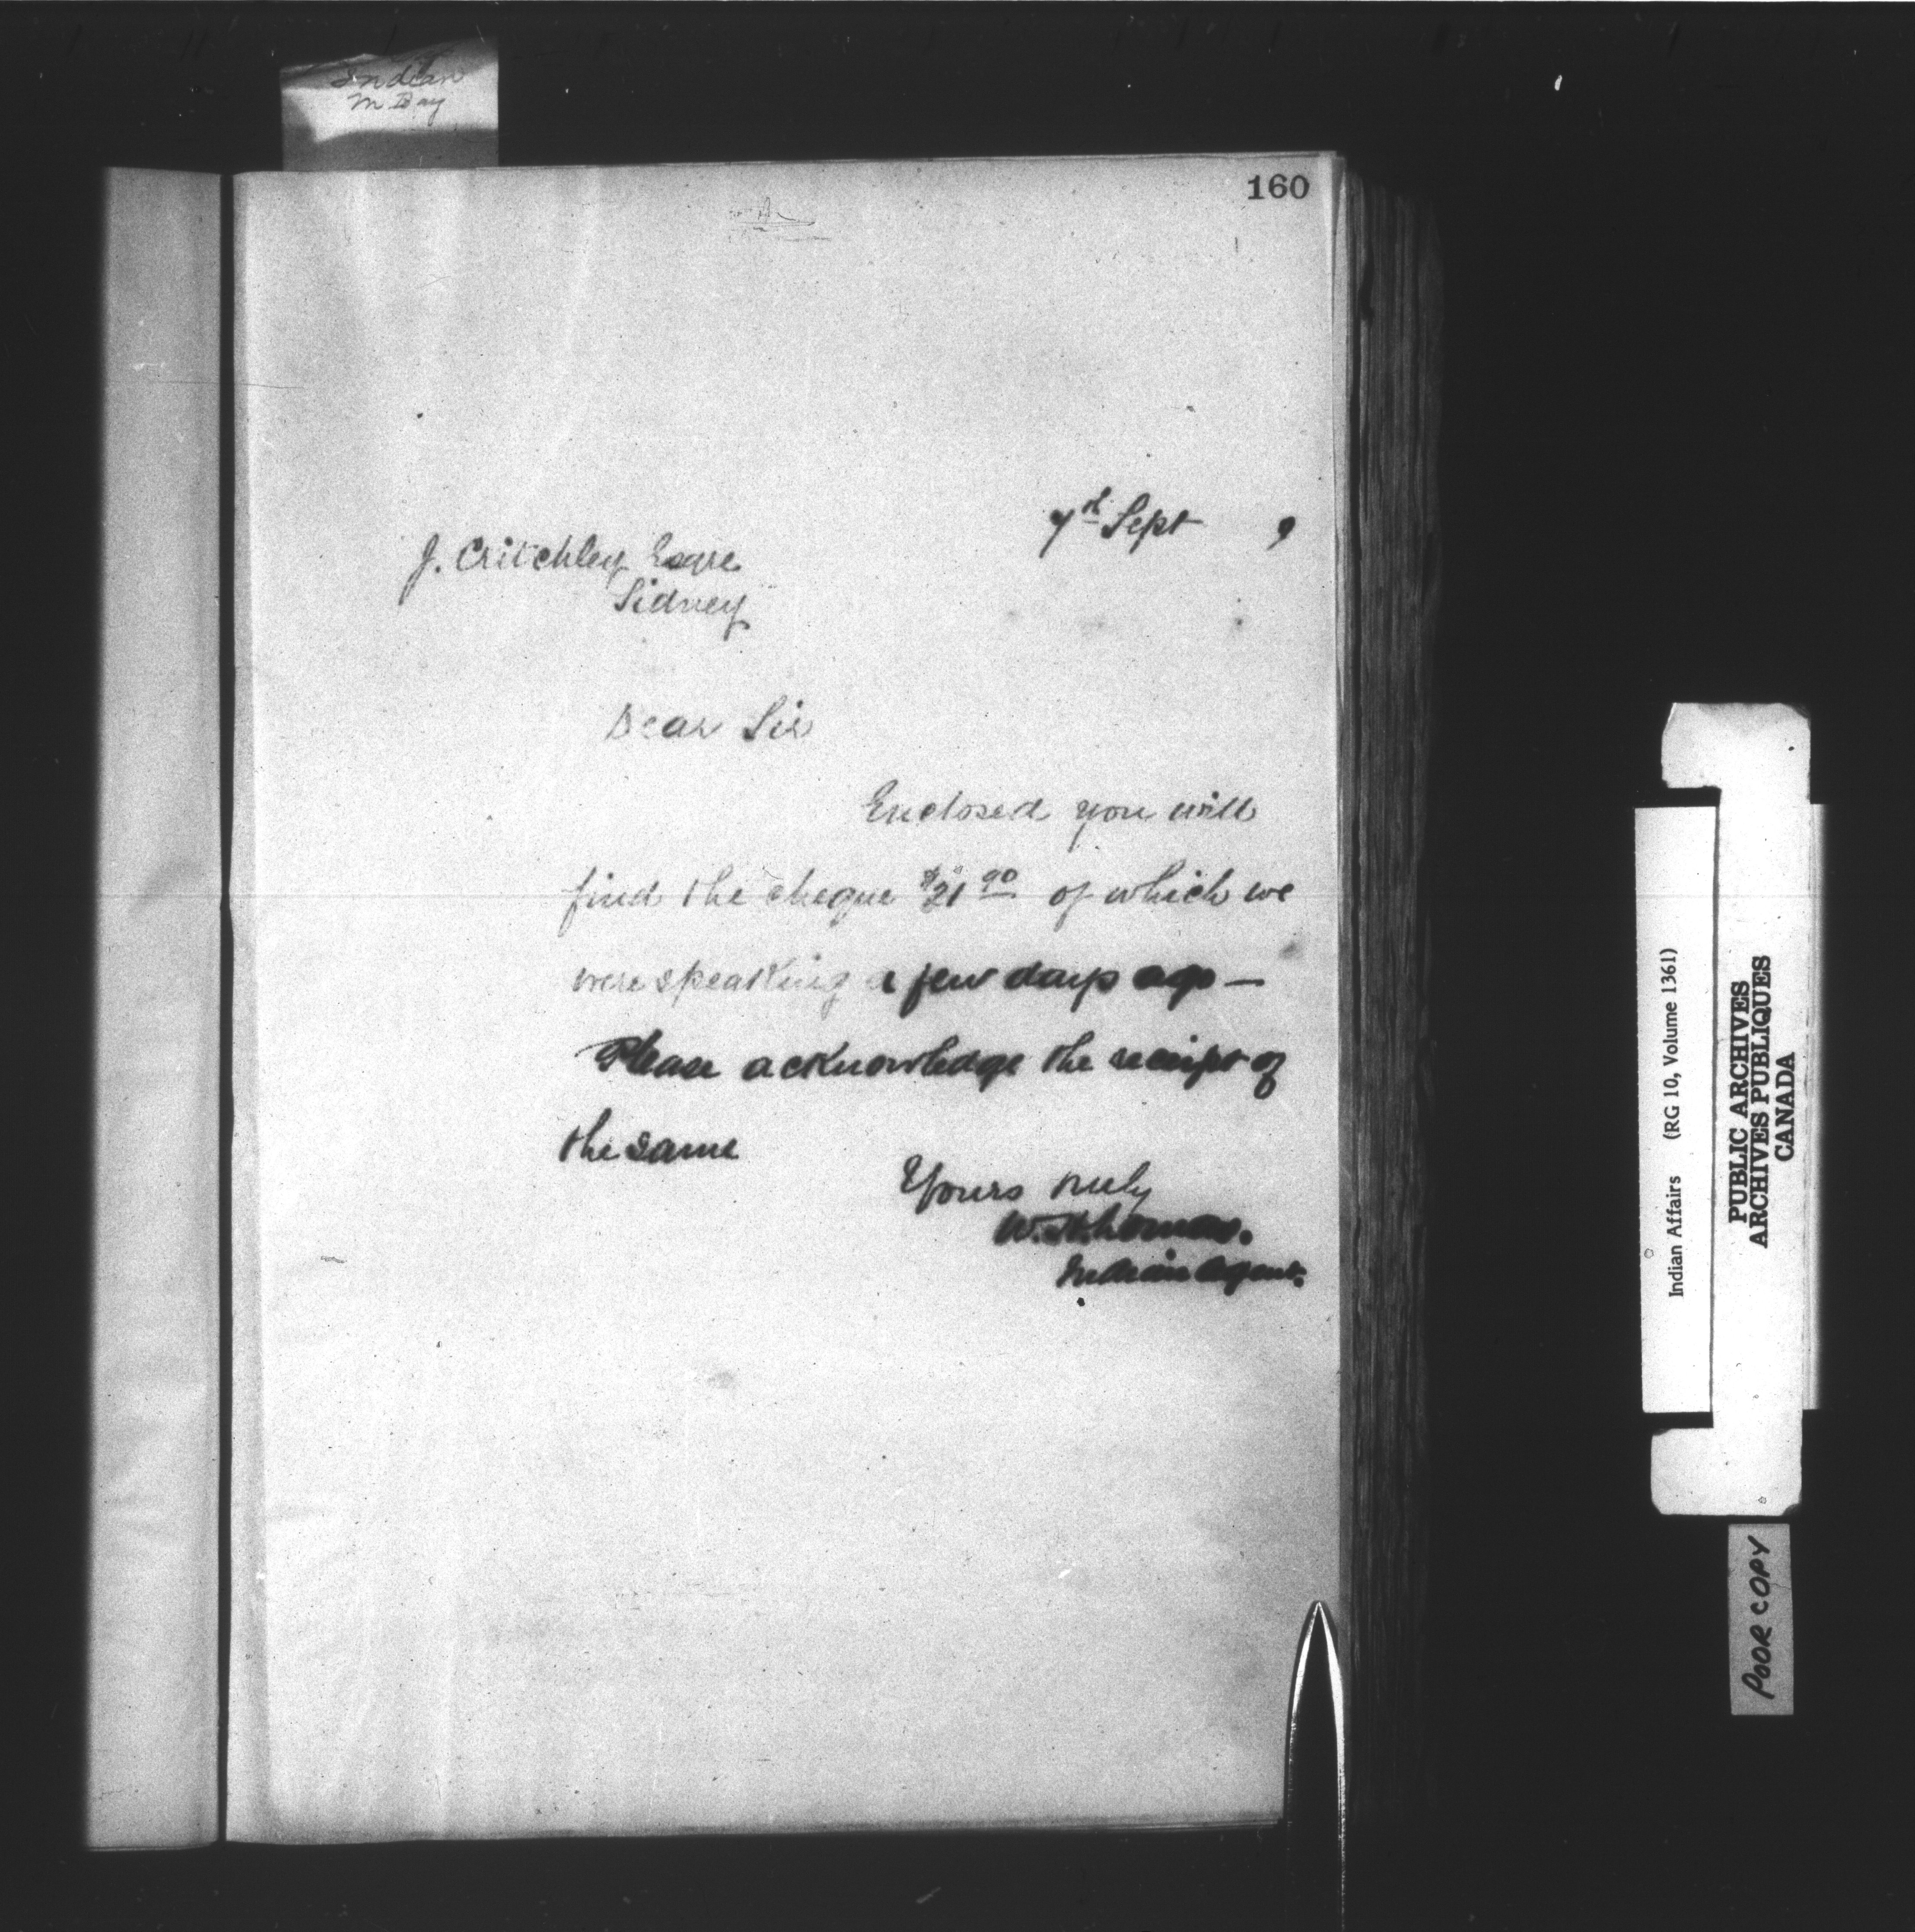 Indian
160
7th Sept 9
J. Critchley Esqre
Sidney
Dear Sir
Enclosed you will
find the cheque $21 90 of which we
were speaking a few days ago —
Please acknowledge the receipt of
the same
Yours truly
W. R.
Indian Agent.
Indian Affairs (RG 10, Volume 1361)
PUBLIC ARCHIVES
ARCHIVES PUBLIQUES
CANADA
POOR COPY